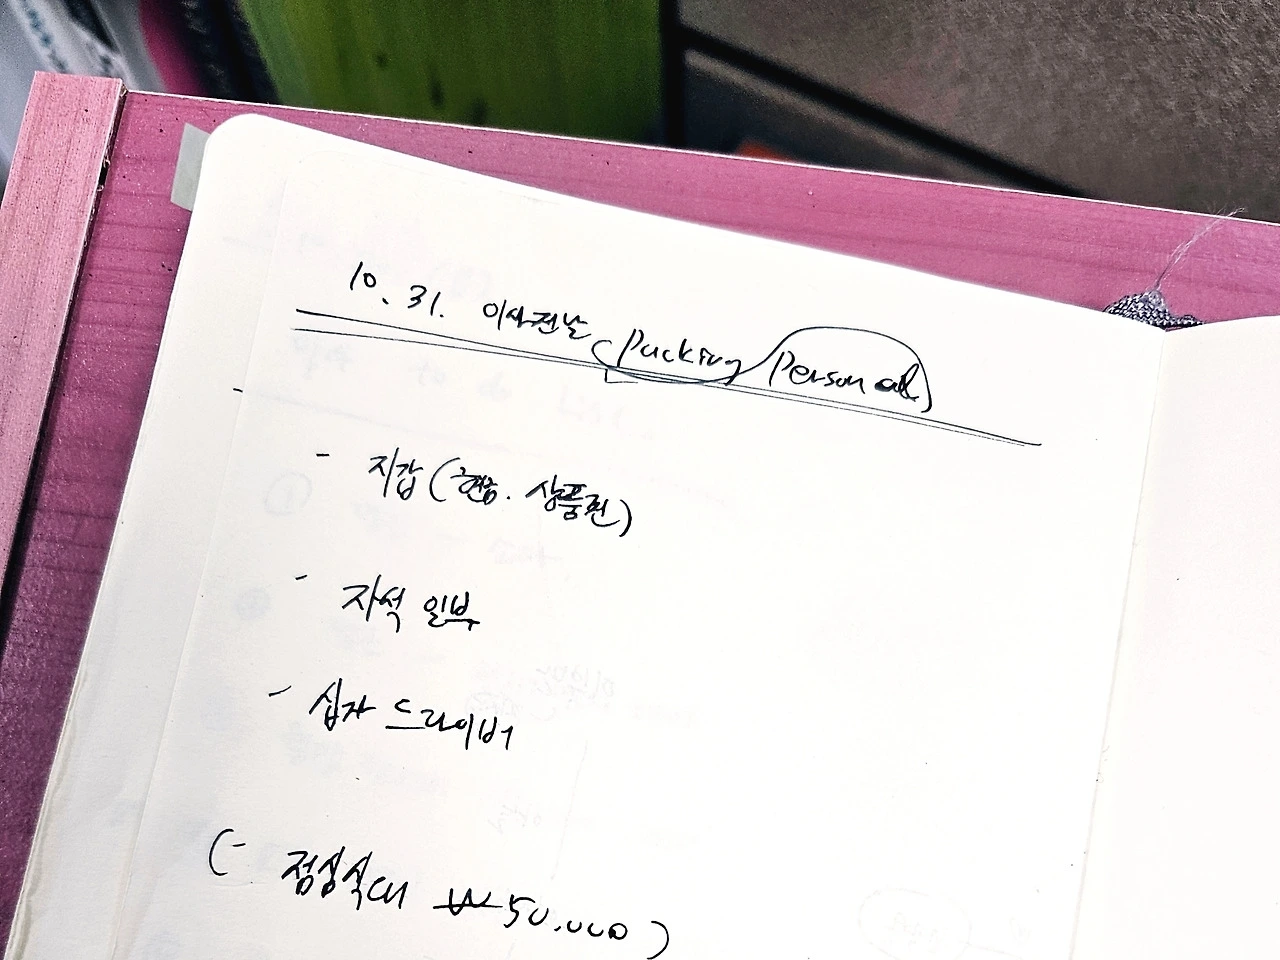 10. 31. 이사전날 (Packing / Personal)
- 지갑 (현금. 상품권)
- 자석 일부
- 십자 드라이버
(- 점심식대 ₩50,000)